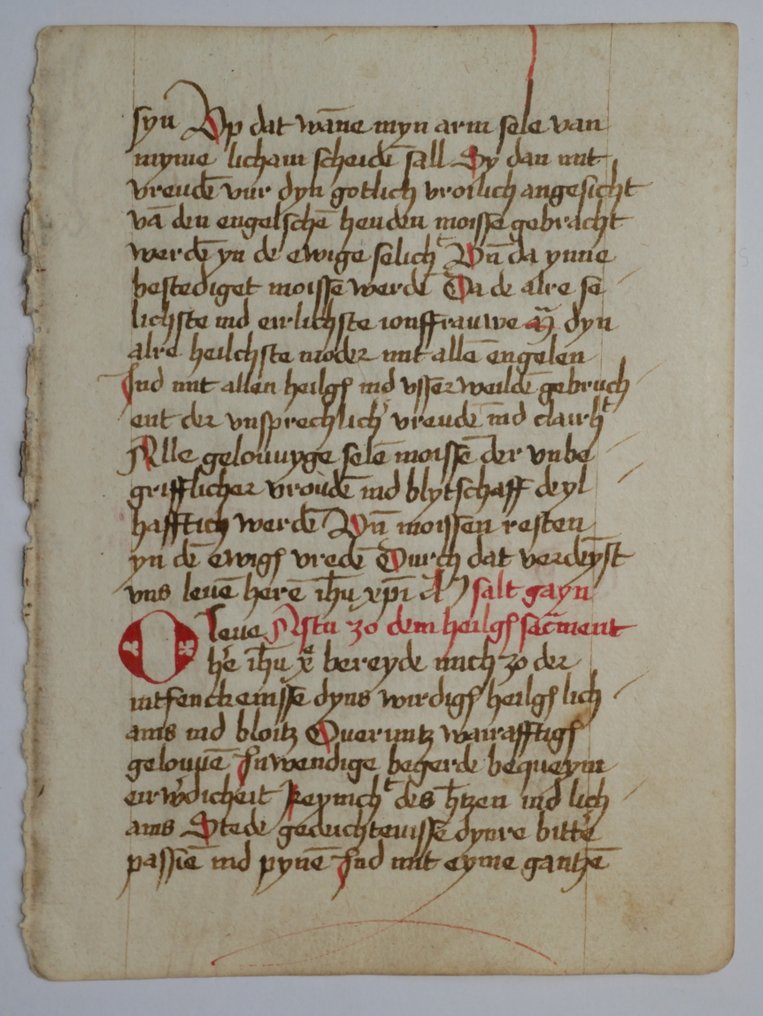 syn Up dat wāne myn arm sele van
myme licham scheidē sall Sy dan mit
vreudē vur dyn gotlich vroilich angesicht
vā den engelschē henden moisse gebracht
werdē yn de ewige selich Un̄ da ynne
bestediget moisse werdē Da de alre se
lichste ind eirlichste ionffrauwe dyn
alre heilchste moder mit allē engelen
Ind mit allen heilgē ind vsserweildē gebruch
ent der vnsprechlichʼ vreudē ind clairhᵗ
Alle gelouuyge selē moissē der vnbe
grifflicher vroudē ind blytschaff deyl
hafftich werdē Un̄ moissen resten
yn dē ewigē vredē Durch dat verdēyst
vns leuē herē ih̄u xp̄i Am̄ salt gayn
O leue Astu zo dem heilgē sac̄ment
hʼe ih̄u xē bereyde mich zo der
intfenckenisse dyns wirdigē heilgē lich
ams ind bloitz Ouermitz wairafftigē
gelouuē Inwendige begerde bequeym
eirwʼdicheit Reynichᵗ des h̄tzen ind lich
ams Stede gedechtenisse dynre bittʼe
passiē ind pynē Ind mit eyme gantzē